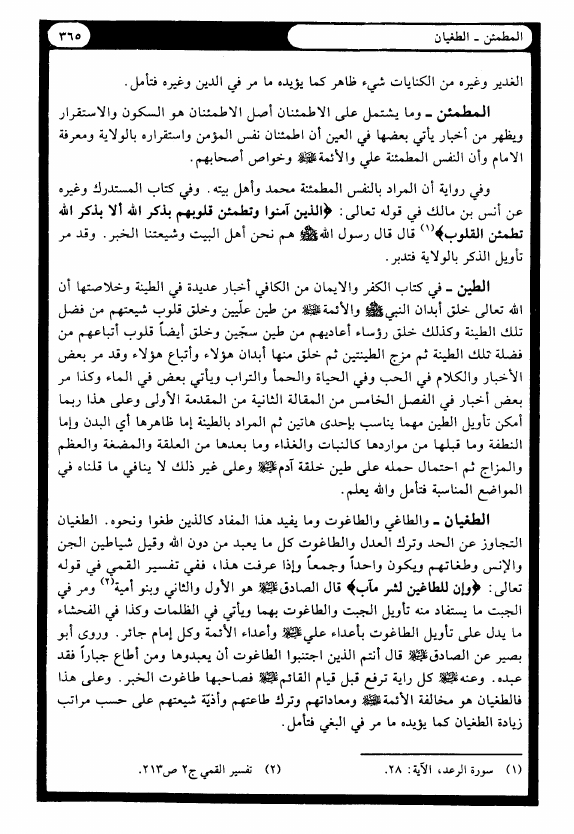 المطمئن ـ الطغيان
٣٦٥
الغدير وغيره من الكنايات شيء ظاهر كما يؤيده ما مر في الدين وغيره فتأمل.
المطمئن ـ وما يشتمل على الاطمئنان أصل الاطمئنان هو السكون والاستقرار
ويظهر من أخبار يأتي بعضها في العين أن اطمئنان نفس المؤمن واستقراره بالولاية ومعرفة
الامام وأن النفس المطمئنة علي والأئمة عليهم السلام وخواص أصحابهم.
وفي رواية أن المراد بالنفس المطمئنة محمد وأهل بيته. وفي كتاب المستدرك وغيره
عن أنس بن مالك في قوله تعالى: ﴿الذين آمنوا وتطمئن قلوبهم بذكر الله ألا بذكر الله
تطمئن القلوب﴾(١) قال قال رسول الله ﷺ هم نحن أهل البيت وشيعتنا الخبر. وقد مر
تأويل الذكر بالولاية فتدبر.
الطين ـ في كتاب الكفر والايمان من الكافي أخبار عديدة في الطينة وخلاصتها أن
الله تعالى خلق أبدان النبي ﷺ والأئمة عليهم السلام من طين علّيين وخلق قلوب شيعتهم من فضل
تلك الطينة وكذلك خلق رؤساء أعاديهم من طين سجّين وخلق أيضاً قلوب أتباعهم من
فضلة تلك الطينة ثم مزج الطينتين ثم خلق منها أبدان هؤلاء وأتباع هؤلاء وقد مر بعض
الأخبار والكلام في الحب وفي الحياة والحمأ والتراب ويأتي بعض في الماء وكذا مر
بعض أخبار في الفصل الخامس من المقالة الثانية من المقدمة الأولى وعلى هذا ربما
أمكن تأويل الطين مهما يناسب بإحدى هاتين ثم المراد بالطينة إما ظاهرها أي البدن وإما
النطفة وما قبلها من مواردها كالنبات والغذاء وما بعدها من العلقة والمضغة والعظم
والمزاج ثم احتمال حمله على طين خلقة آدم عليه السلام وعلى غير ذلك لا ينافي ما قلناه في
المواضع المناسبة فتأمل والله يعلم.
الطغيان ـ والطاغي والطاغوت وما يفيد هذا المفاد كالذين طغوا ونحوه. الطغيان
التجاوز عن الحد وترك العدل والطاغوت كل ما يعبد من دون الله وقيل شياطين الجن
والإنس وطغاتهم ويكون واحداً وجمعاً وإذا عرفت هذا، ففي تفسير القمي في قوله
تعالى: ﴿وإن للطاغين لشر مآب﴾ قال الصادق عليه السلام هو الأول والثاني وبنو أمية(٢) ومر في
الجبت ما يستفاد منه تأويل الجبت والطاغوت بهما ويأتي في الظلمات وكذا في الفحشاء
ما يدل على تأويل الطاغوت بأعداء علي عليه السلام وأعداء الأئمة وكل إمام جائر. وروى أبو
بصير عن الصادق عليه السلام قال أنتم الذين اجتنبوا الطاغوت أن يعبدوها ومن أطاع جباراً فقد
عبده. وعنه عليه السلام كل راية ترفع قبل قيام القائم عليه السلام فصاحبها طاغوت الخبر. وعلى هذا
فالطغيان هو مخالفة الأئمة عليهم السلام ومعاداتهم وترك طاعتهم وأذيّة شيعتهم على حسب مراتب
زيادة الطغيان كما يؤيده ما مر في البغي فتأمل.
(١) سورة الرعد، الآية: ٢٨.
(٢) تفسير القمي ج٢ ص٢١٣.